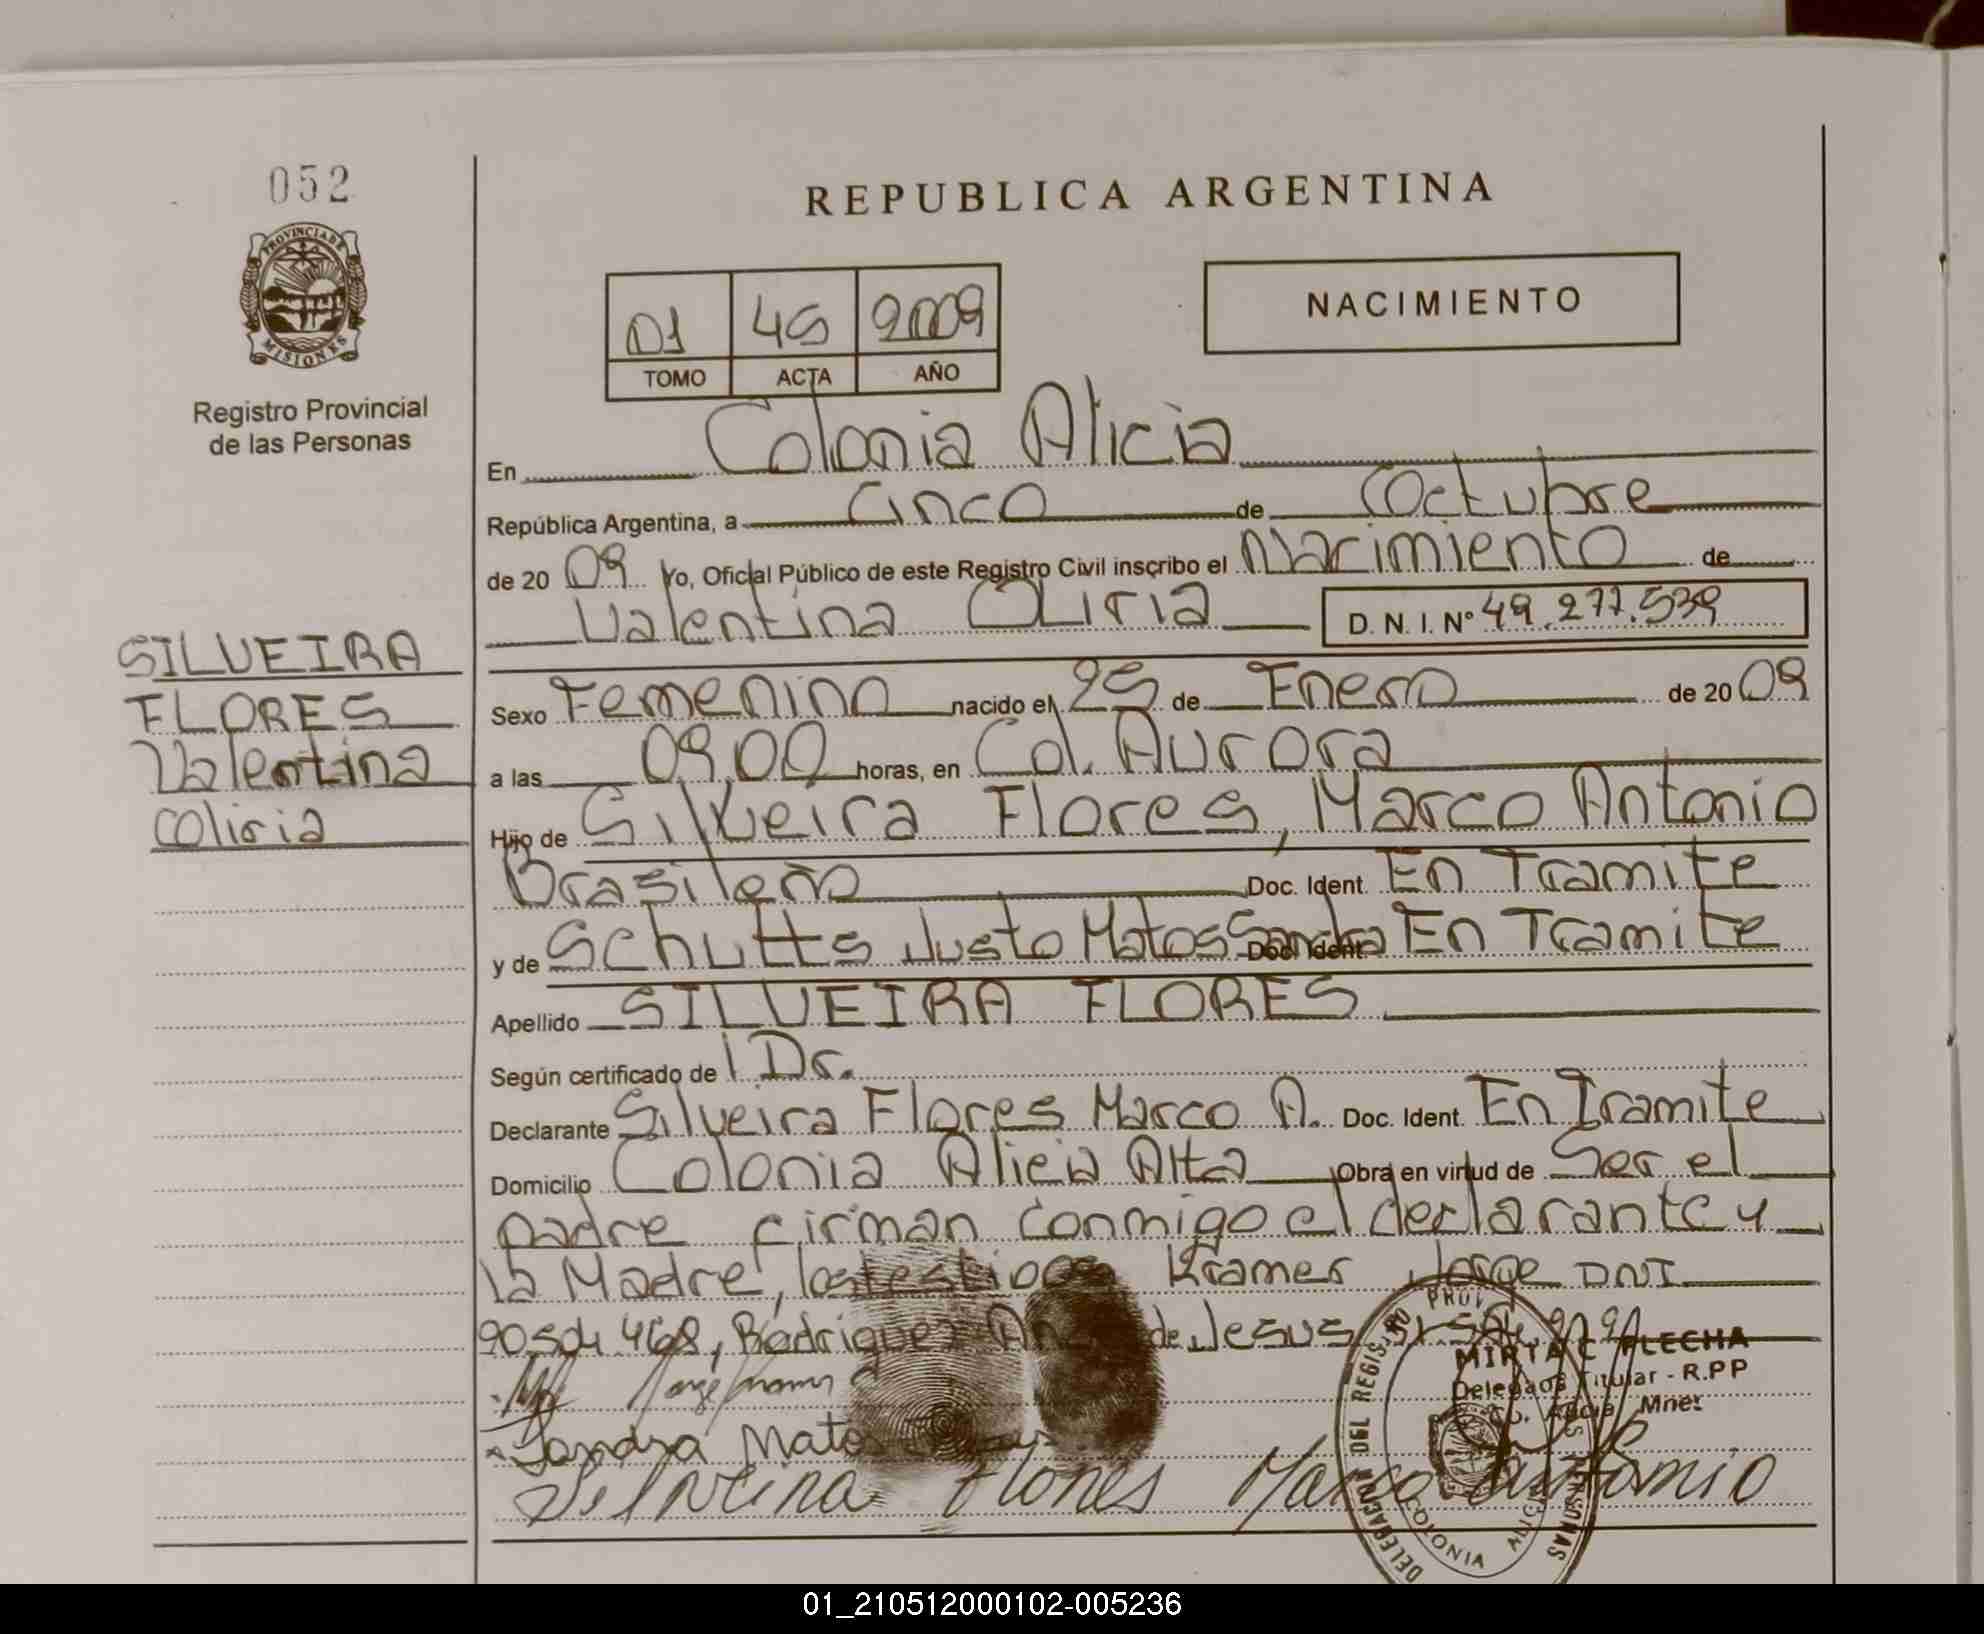 052
REPUBLICA ARGENTINA
PROVINCIA DE
MISIONES
Registro Provincial
de las Personas
01 45 2009
TOMO ACTA AÑO
NACIMIENTO
En Colonia Alicia
República Argentina, a Cinco de Octubre
de 20 09 Yo, Oficial Público de este Registro Civil inscribo el Nacimiento de
Valentina Oliria D. N. I. Nº 49.277.539
SILVEIRA
FLORES
Valentina
Oliria
Sexo Femenino nacido el 25 de Enero de 20 09
a las 09,00 horas, en Col. Aurora
Hijo de Silveira Flores, Marco Antonio
Brasileño Doc. Ident. En Tramite
y de Schutts Justo Matos Sandra Doc. Ident. En Tramite
Apellido SILVEIRA FLORES
Según certificado de Dr.
Declarante Silveira Flores Marco A. Doc. Ident. En Tramite
Domicilio Colonia Alicia Alta Obra en virtud de Ser el
padre firman conmigo el declarante y
la Madre, los testigos Kramer Jorge DNI
90504468, Rodriguez de Jesus
MIRTA C FLECHA
Delegada Titular - R.PP
Co. Alicia Mnes
Sandra Matos
Silveira Flores Marco Antonio
DELEGACION DEL REGISTRO PROV PERSONAS
COLONIA ALICIA
01_210512000102-005236